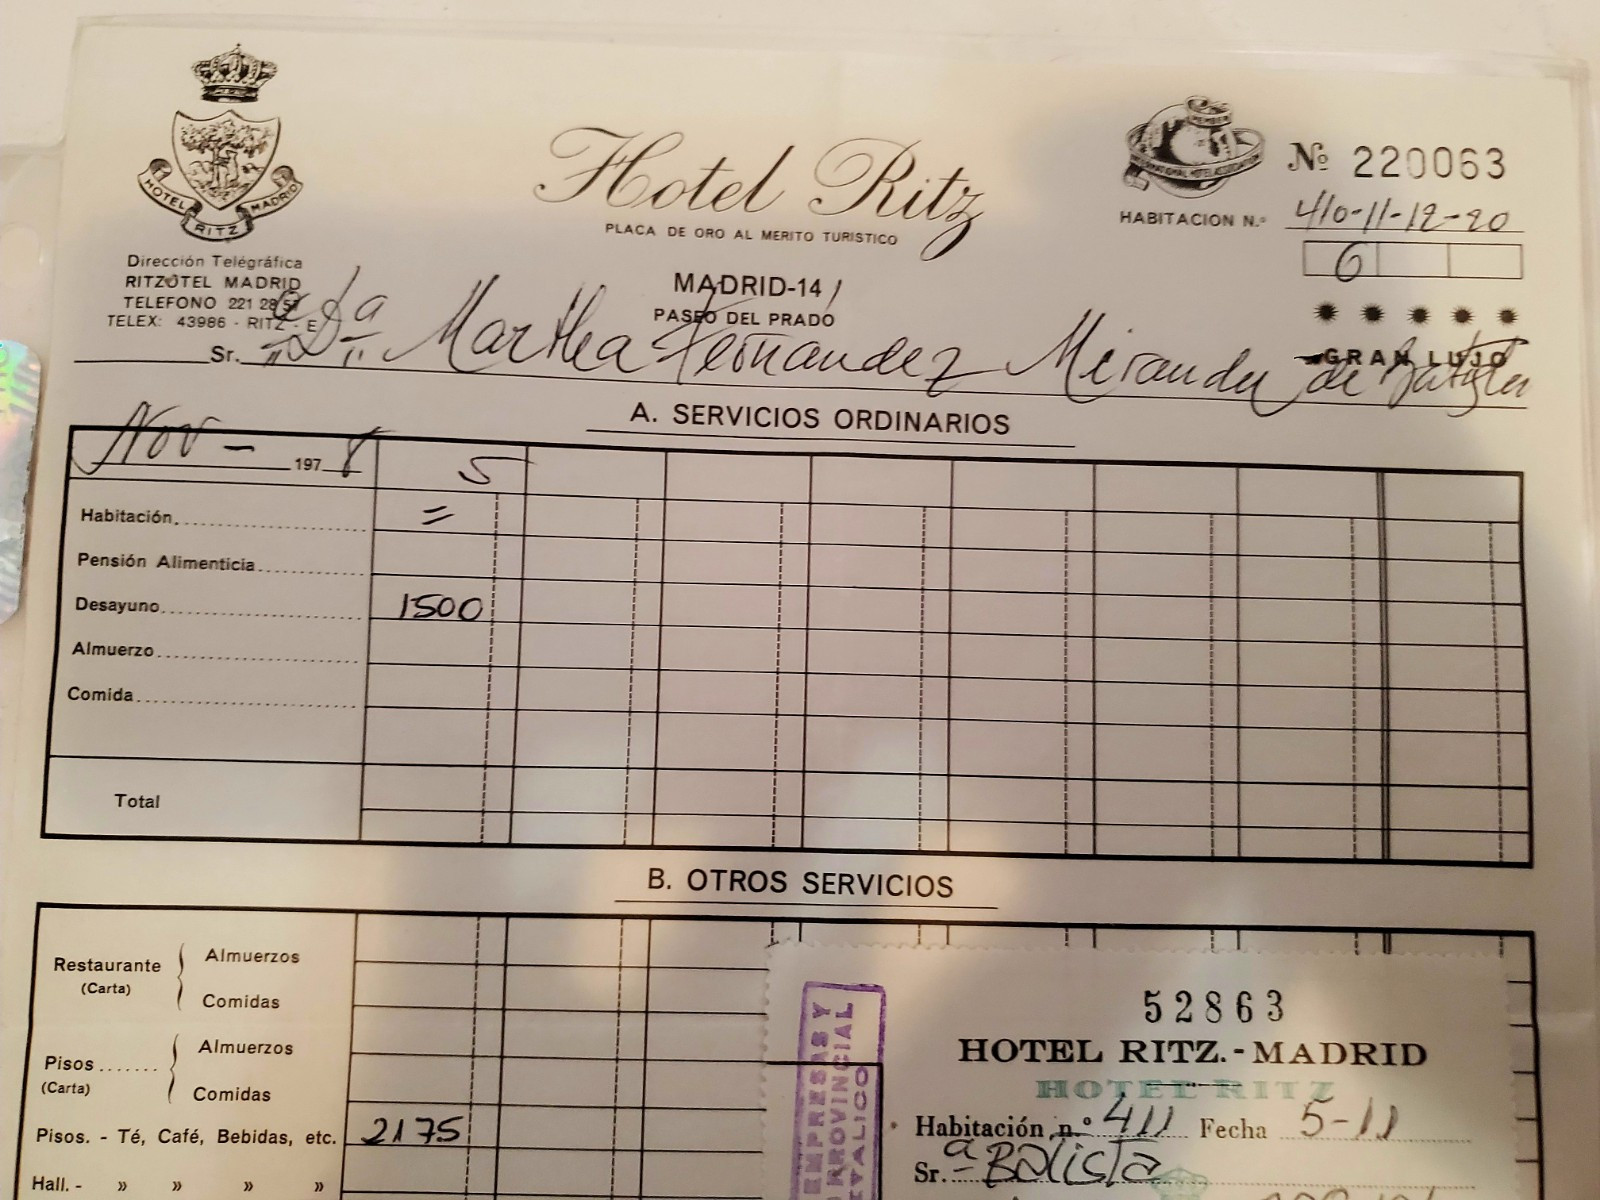 HOTEL RITZ MADRID
Dirección Telégráfica
RITZOTEL MADRID
TELEFONO 221 28 57
TELEX: 43986 - RITZ - E
Hotel Ritz
PLACA DE ORO AL MERITO TURISTICO
MADRID-14
PASEO DEL PRADO
MEMBER
INTERNATIONAL HOTEL ASSOCIATION
Nº 220063
HABITACION N.º 410-11-12-20
6
GRAN LUJO
Sr. Dª Martha Fernandez Miranda de Batista
A. SERVICIOS ORDINARIOS
Nov - 1978 5
Habitación =
Pensión Alimenticia
Desayuno 1500
Almuerzo
Comida
Total
B. OTROS SERVICIOS
Restaurante (Carta) Almuerzos
Comidas
Pisos (Carta) Almuerzos
Comidas
Pisos. - Té, Café, Bebidas, etc. 2175
Hall. - » » » »
EMPRESAS Y
PROVINCIAL
METALICO
52863
HOTEL RITZ.-MADRID
HOTEL RITZ
Habitación n.º 411 Fecha 5-11
Sr.ª Batista